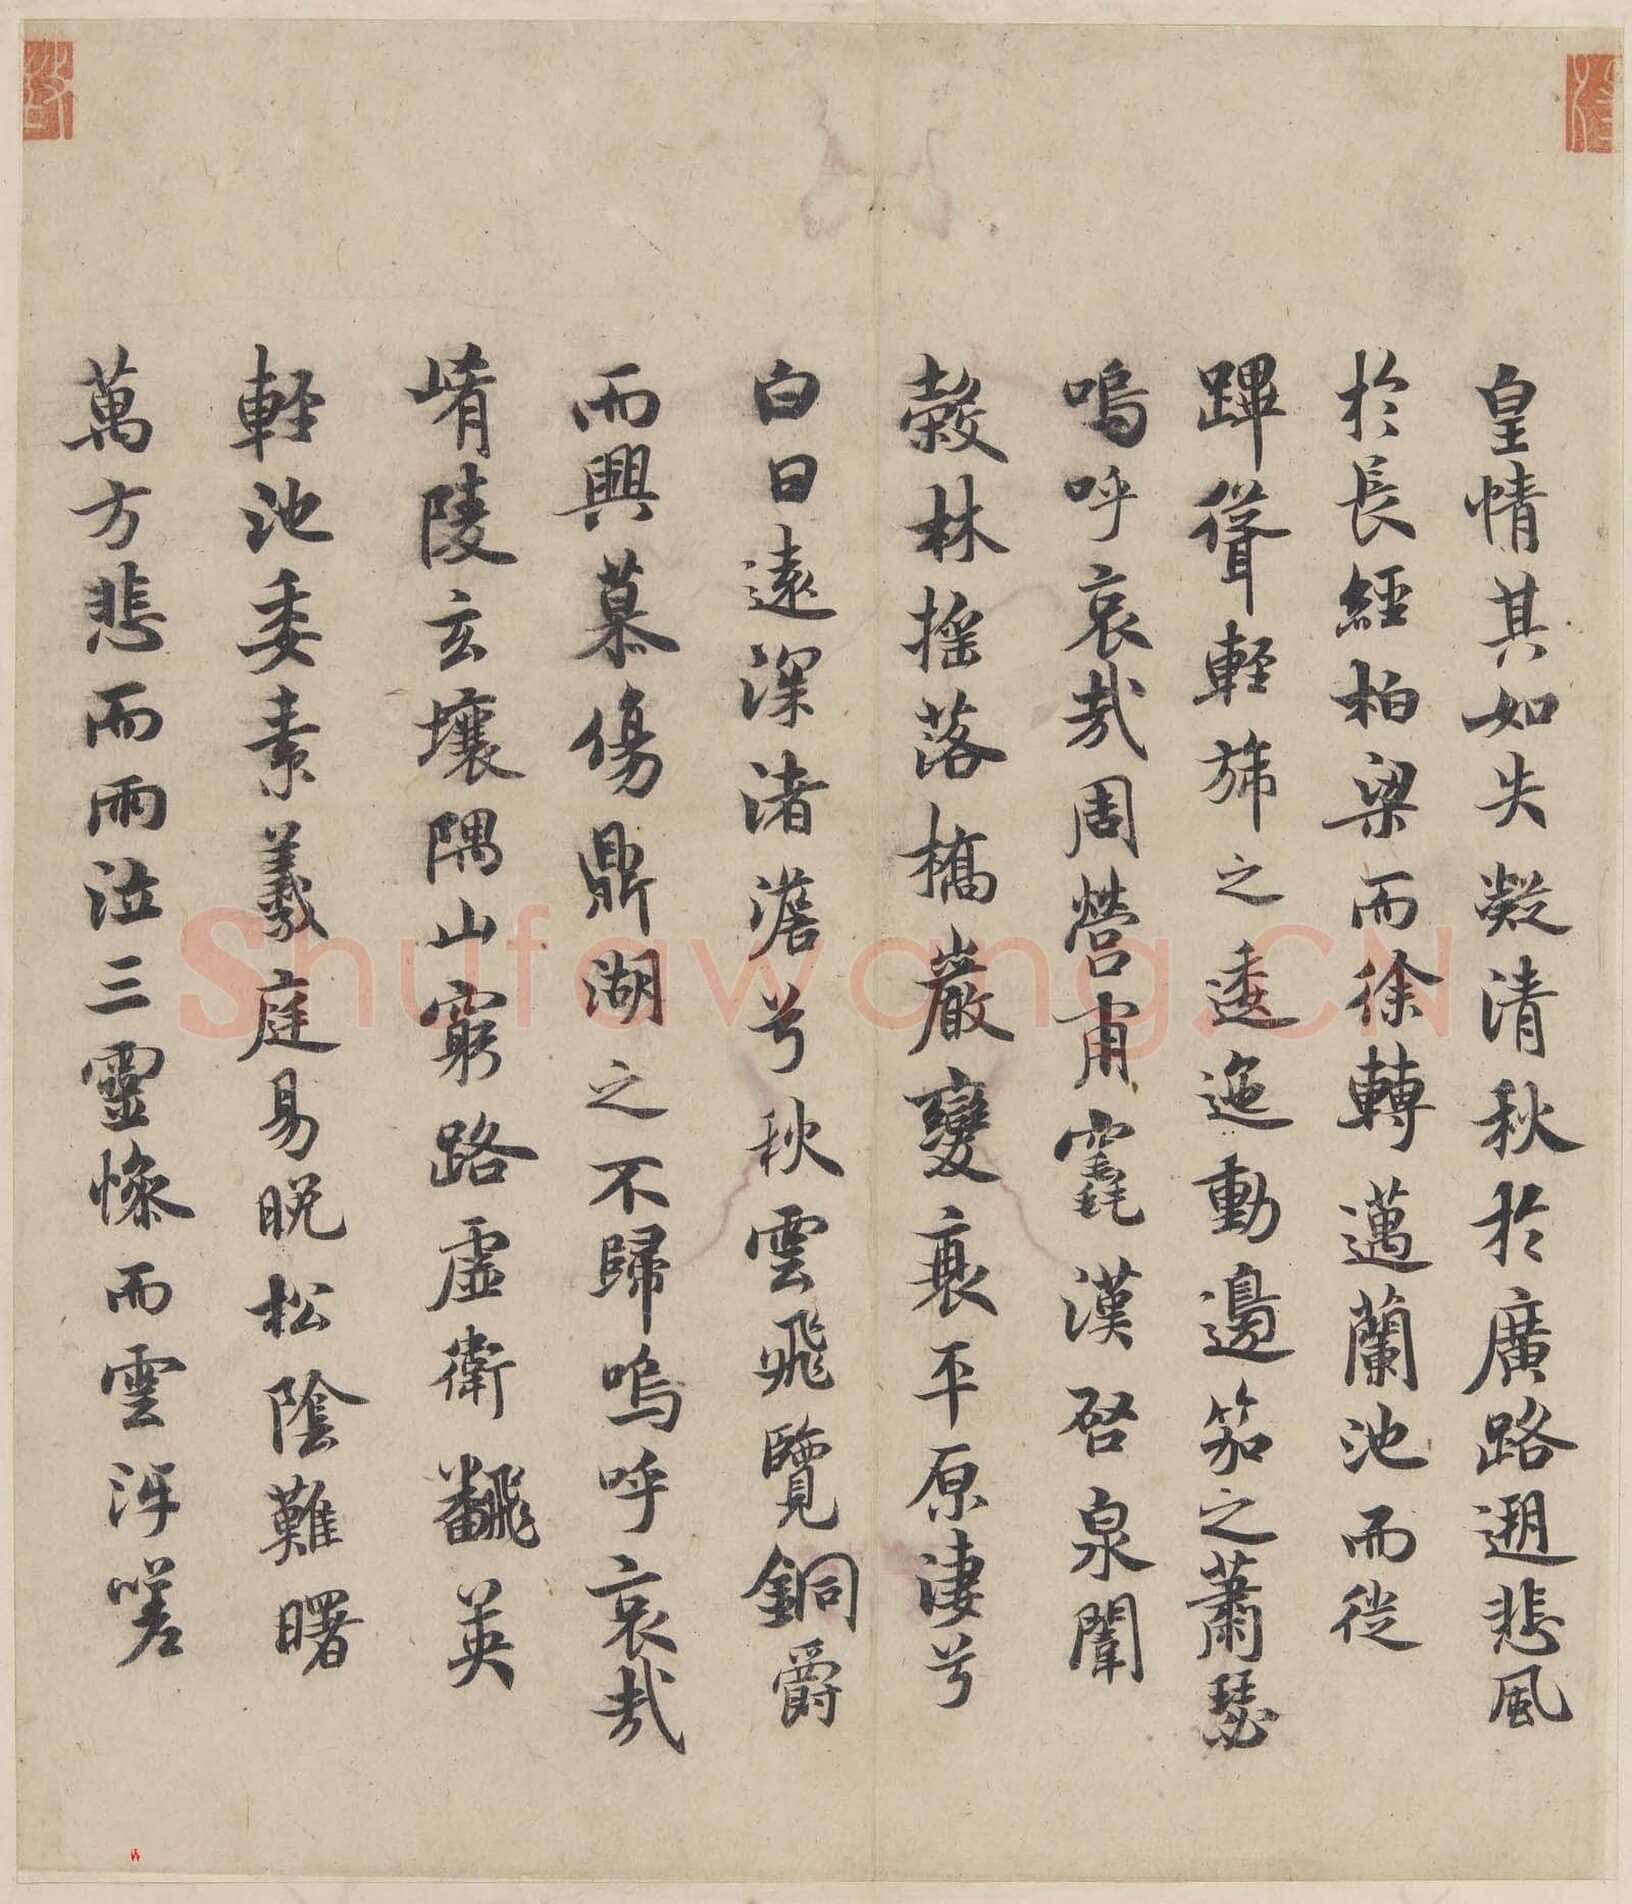 皇情其如失凝清秋於廣路遡悲風
於長經柏梁而徐轉邁蘭池而從
蹕聳輕旆之逶迤動邊笳之蕭瑟
嗚呼哀哉周營甫竁漢啓泉闈
穀林搖落橋巖變衰平原淒兮
白日遠深渚澹兮秋雲飛覽銅爵
而興慕傷鼎湖之不歸嗚呼哀哉
崤陵玄壤隅山窮路虛衛飜英
輕池委素羲庭易晩松陰難曙
萬方悲而雨泣三靈慘而雲冱嗟
Shufawang.CN